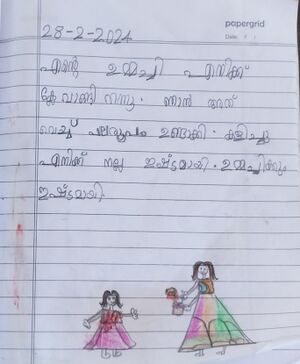 papergrid
Date: / /
28-2-2024
എന്റെ ഉമ്മച്ചി എനിക്ക്
ക്ലേ വാങ്ങി തന്നു. ഞാൻ അത്
വെച്ച് പലരൂപം ഉണ്ടാക്കി. കളിച്ചു
എനിക്ക് നല്ല ഇഷ്ടമായി. ഉമ്മച്ചിക്കും
ഇഷ്ടമായി.